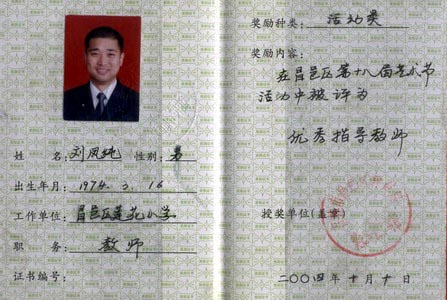 姓 名：刘凤纯 性别：男
出生年月：1974.3.16
工作单位：昌邑区莲花小学
职 务：教师
证书编号：
奖励种类：活动类
奖励内容：
在昌邑区第十八届艺术节
活动中被评为
优秀指导教师
授奖单位(盖章)
二〇〇四年十月十日